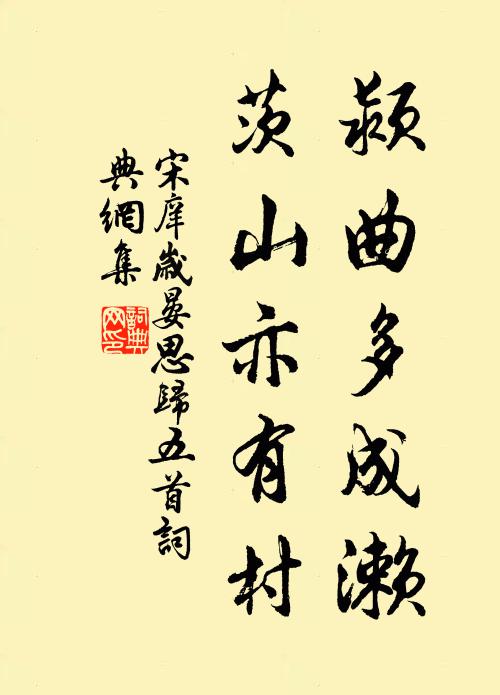 潁曲多成瀨
茨山亦有村
宋庠歲晏思歸五首詞
典網集
詞典
网印